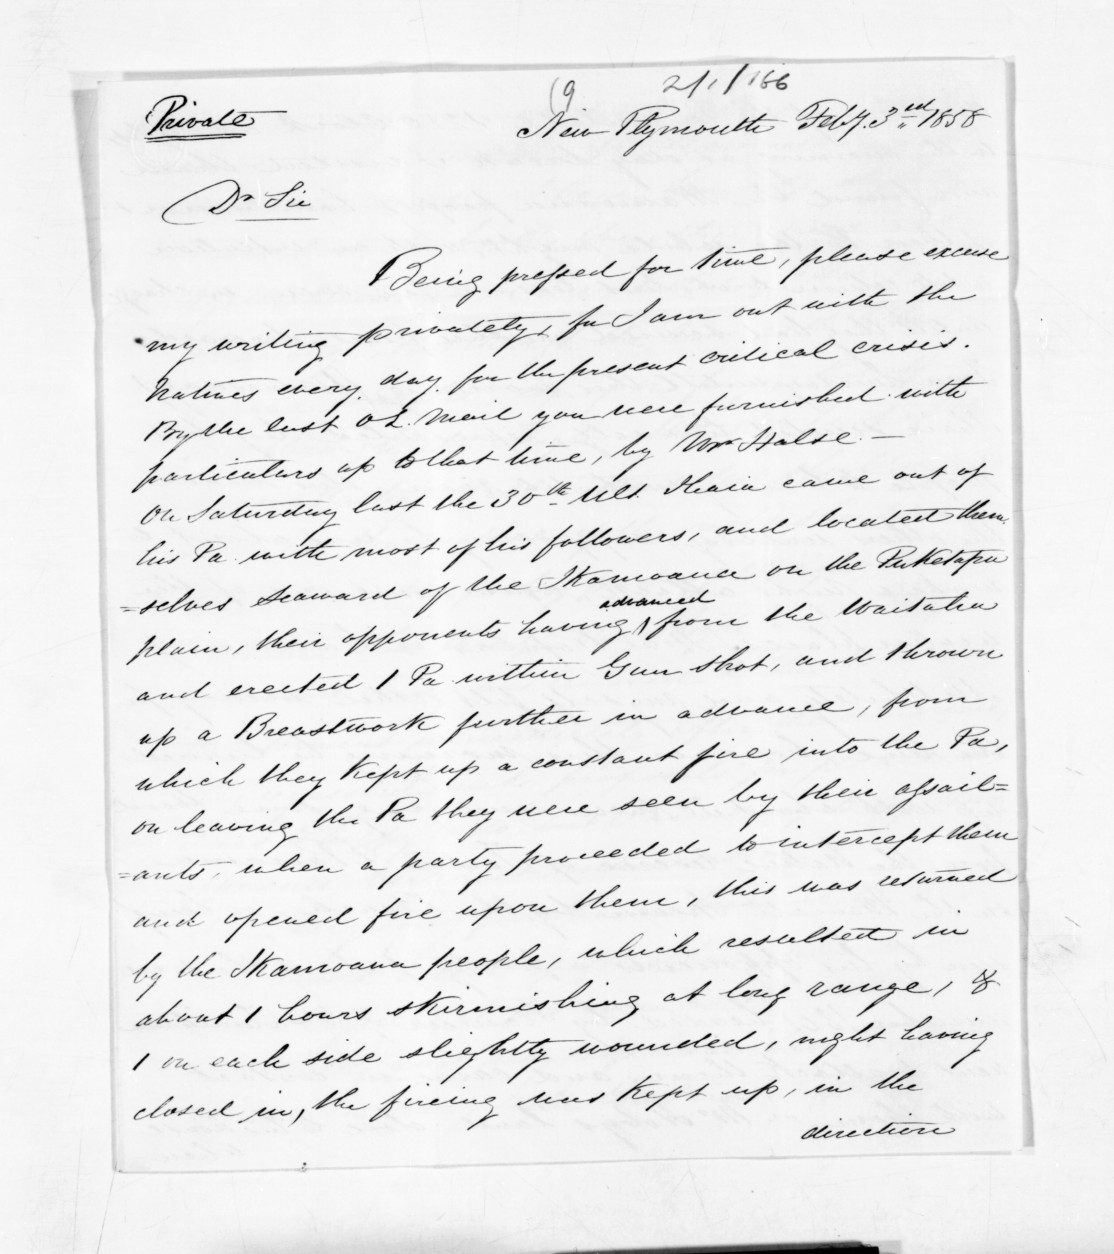 (9 2/1/166
Private
New Plymouth Feby. 3rd 1858
Dr Sir
Being pressed for time, please excuse
my writing privately, for I am out with the
Natives every day for the present critical crisis.
By the last O.L. Mail you were furnished with
particulars up to that time, by Mr Halse. —
On Saturday last the 30th Ult. Ihaia came out of
his Pa with most of his followers, and located them
=selves seaward of the Ikamoana on the Puketapu
plain, their opponents having advanced from the Waitaha
and erected 1 Pa within Gun shot, and thrown
up a Breastwork further in advance, from
which they kept up a constant fire into the Pa,
on leaving the Pa they were seen by their assail=
=ants, when a party proceeded to intercept them
and opened fire upon them, this was returned
by the Ikamoana people, which resulted in
about 1 hours skirmishing at long range, &
1 on each side slightly wounded, night having
closed in, the fireing was kept up, in the
direction